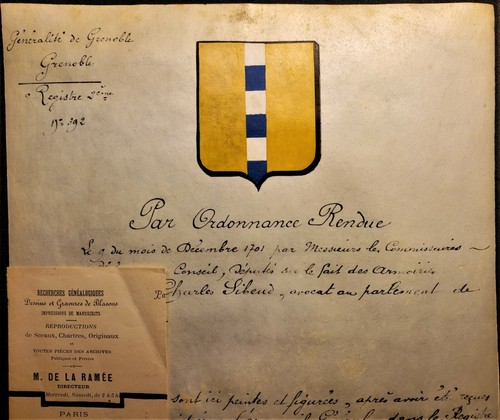 Généralité de Grenoble
Grenoble
Registre 2ème
N° 392
Par Ordonnance Rendue
Le 9 du mois de Décembre 1701 par Messieurs les Commissaires
Conseil, Députés sur le fait des Armoiries
Charles Sibeud, avocat au parlement de
RECHERCHES GÉNÉALOGIQUES
Dessins et Gravures de Blasons
IMPRESSIONS DE MANUSCRITS
REPRODUCTIONS
de Sceaux, Chartres, Originaux
et
TOUTES PIÈCES DES ARCHIVES
Publiques et Privées
M. DE LA RAMÉE
DIRECTEUR
Mercredi, Samedi, de 2 à 5 h.
PARIS
sont ici peintes et figurées, après avoir été reçues